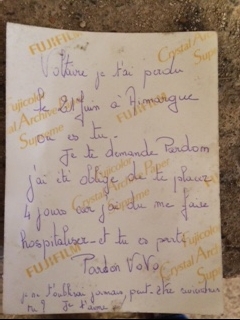 Voltaire je t'ai perdu
le 21 Juin à Aimargue
ou es tu.
Je te demande Pardon
j'ai été obligé de te placer
4 jours car j'ai du me faire
hospitaliser - et tu es parti
Pardon VoVo
je ne t'oublierai jamais peut-être
tu ? Je t'aime
FUJIFILM
Fujicolor
Crystal Archive Paper
Supreme